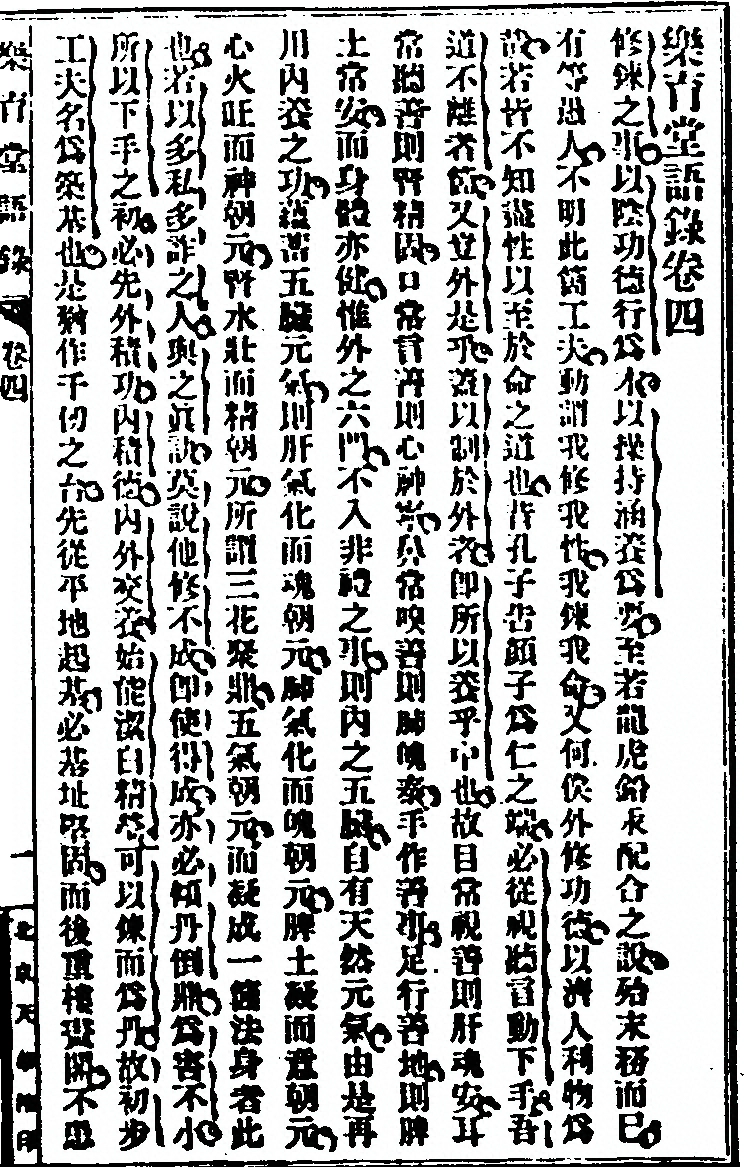 樂育堂語錄卷四
修鍊之事以陰功德行為本以操持涵養為要至若龍虎鉛汞配合之說殆末務而已
有等愚人不明此箇工夫動謂我修我性我鍊我命又何俟外修功德以濟人利物為
哉若皆不知盡性以至於命之道也昔孔子告顏子為仁之端必從視聽言動下手吾
道不離者箇又豈外是乎蓋以制於外者即所以養乎中也故目常視善則肝魂安耳
常聽善則腎精固口常言善則心神寧鼻常嗅善則肺魄泰手作善事足行善地則脾
土常安而身體亦健惟外之六門不入非禮之事則內之五臟自有天然元氣由是再
加內養之功蘊蓄五臟元氣則肝氣化而魂朝元肺氣化而魄朝元脾土凝而意朝元
心火旺而神朝元腎水壯而精朝元所謂三花聚鼎五氣朝元而凝成一箇法身者此
也若以多私多詐之人與之真訣莫說他修不成即使得成亦必傾丹倒鼎為害不小
所以下手之初必先外積功內積德內外交養始能潔白精瑩可以鍊而為丹故初步
工夫名為築基也是猶作千仞之台先從平地起基必基址堅固而後重樓畫閣不患
樂育堂語錄 卷四 一
北京天華館印